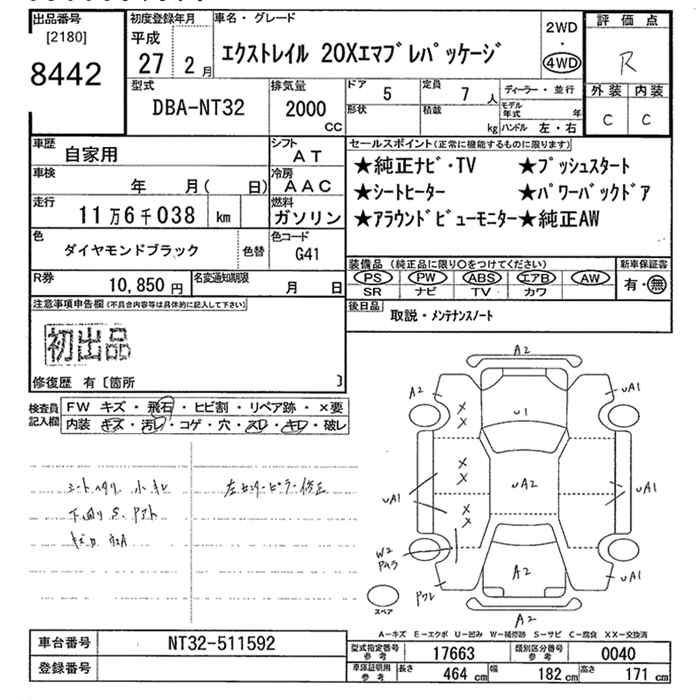 出品番号
[2180]
8442
初度登録年月
平成
27 2月
車名・グレード
エクストレイル 20Xエマブレパッケージ
2WD
・
4WD
評価点
R
外装 内装
C C
型式
DBA-NT32
排気量
2000
CC
ドア 5
定員 7 人
形状
積載 kg
ディーラー・並行
モデル年式 年
ハンドル 左・右
車歴 自家用
シフト AT
車検 年 月( 日)
冷房 AAC
走行 11万6千038 km
燃料 ガソリン
色 ダイヤモンドブラック
色替
色コード G41
R券 10,850円
名変通知期限 月 日
セールスポイント(正常に機能するものに限ります)
★純正ナビ・TV ★プッシュスタート
★シートヒーター ★パワーバックドア
★アラウンドビューモニター★純正AW
装備品(純正品に限り○をつけてください)
PS PW ABS エアB AW
SR ナビ TV カワ
新車保証書
有・無
後日品
取説・メンテナンスノート
注意事項申告欄(不具合内容等は具体的に記入して下さい)
初出品
修復歴 有〔箇所 〕
検査員記入欄
FW キズ・飛石・ヒビ割・リペア跡・×要
内装 キズ・汚レ・コゲ・穴・スレ・キレ・破レ
シートヘタリ 小キレ
左センターピラー修正
下回りS.
A2
A2
uA1
U1
X
X
X
X
uA1
uA2
uA1
X
X
W2
A2
uA1
A2
スペア
A-キズ E-エクボ U-凹み W-補修跡 S-サビ C-腐食 XX-交換済
車台番号 NT32-511592
登録番号
型式指定番号参考 17663
類別区分番号参考 0040
車庫証明用参考
長さ 464 cm
幅 182 cm
高さ 171 cm